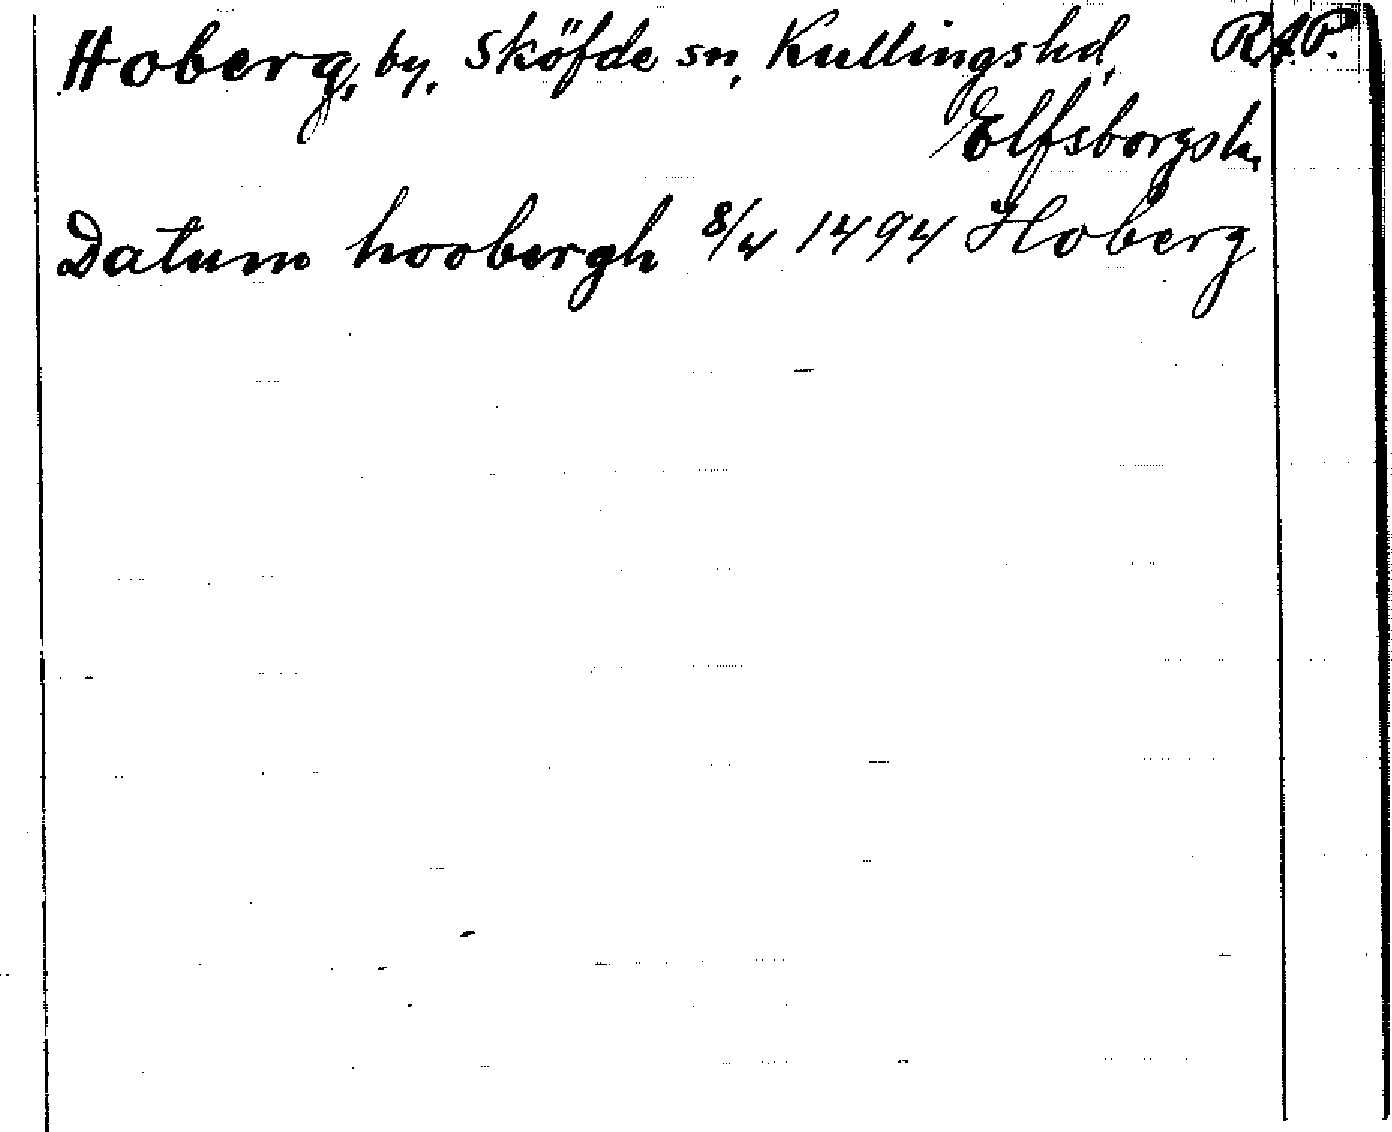 Hoberg, by, Sköfde sn, Kullings hd, RAP.
Elfsborgs l.
Datum hoobergh 8/4 1494 Hoberg